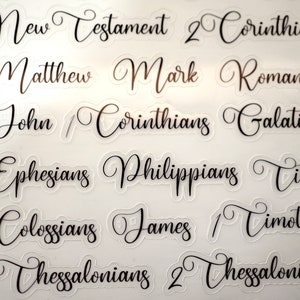 New Testament 2 Corinthi
Matthew Mark Roman
John 1 Corinthians Galati
Ephesians Philippians Ti
Colossians James 1 Timot
Thessalonians 2 Thessaloni